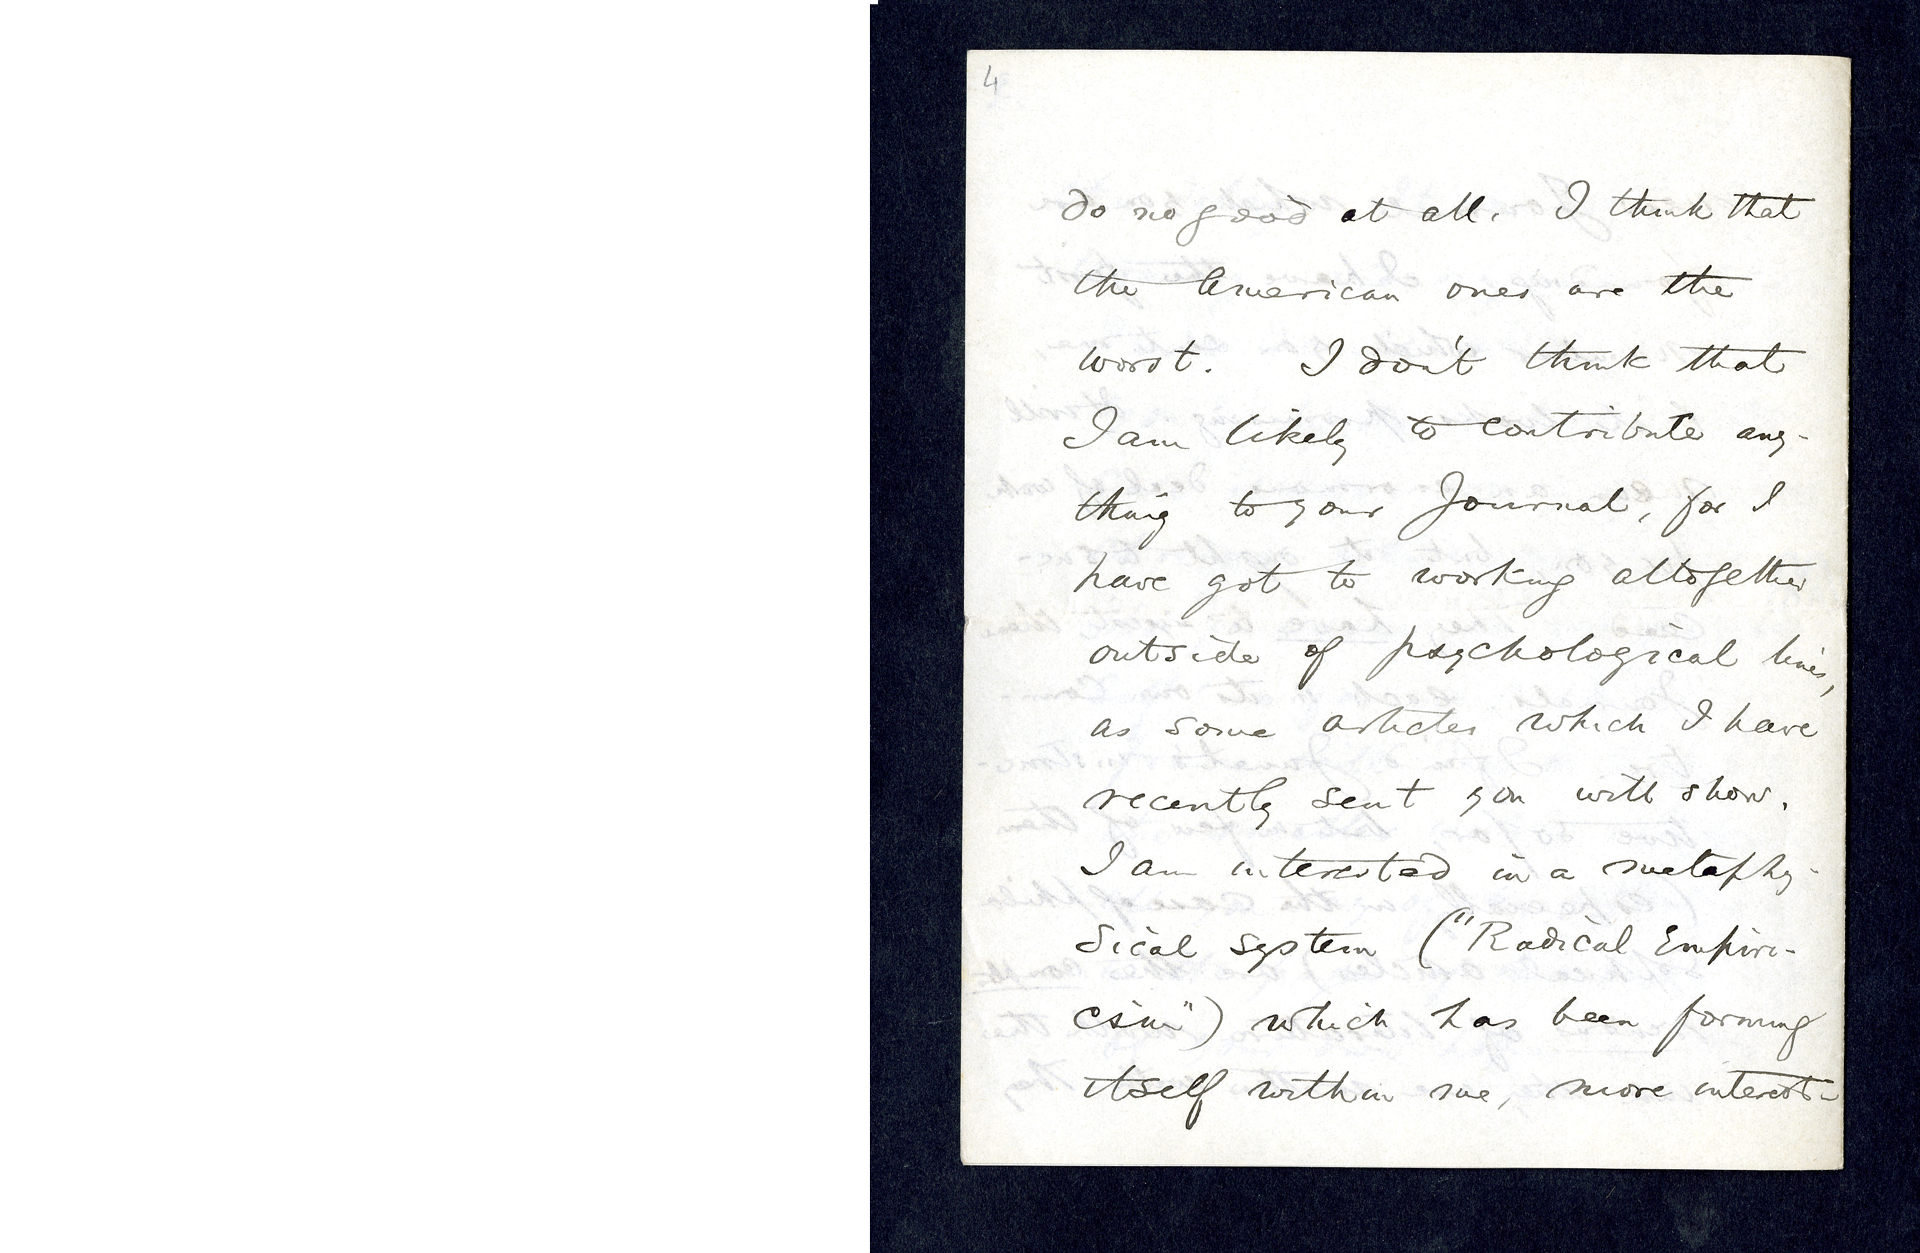 4
do no good at all. I think that
the American ones are the
worst. I don't think that
I am likely to contribute any-
thing to your Journal, for I
have got to working altogether
outside of psychological lines,
as some articles which I have
recently sent you will show.
I am interested in a metaphy-
sical system ("Radical Empiri-
cism") which has been forming
itself within me, more interest-